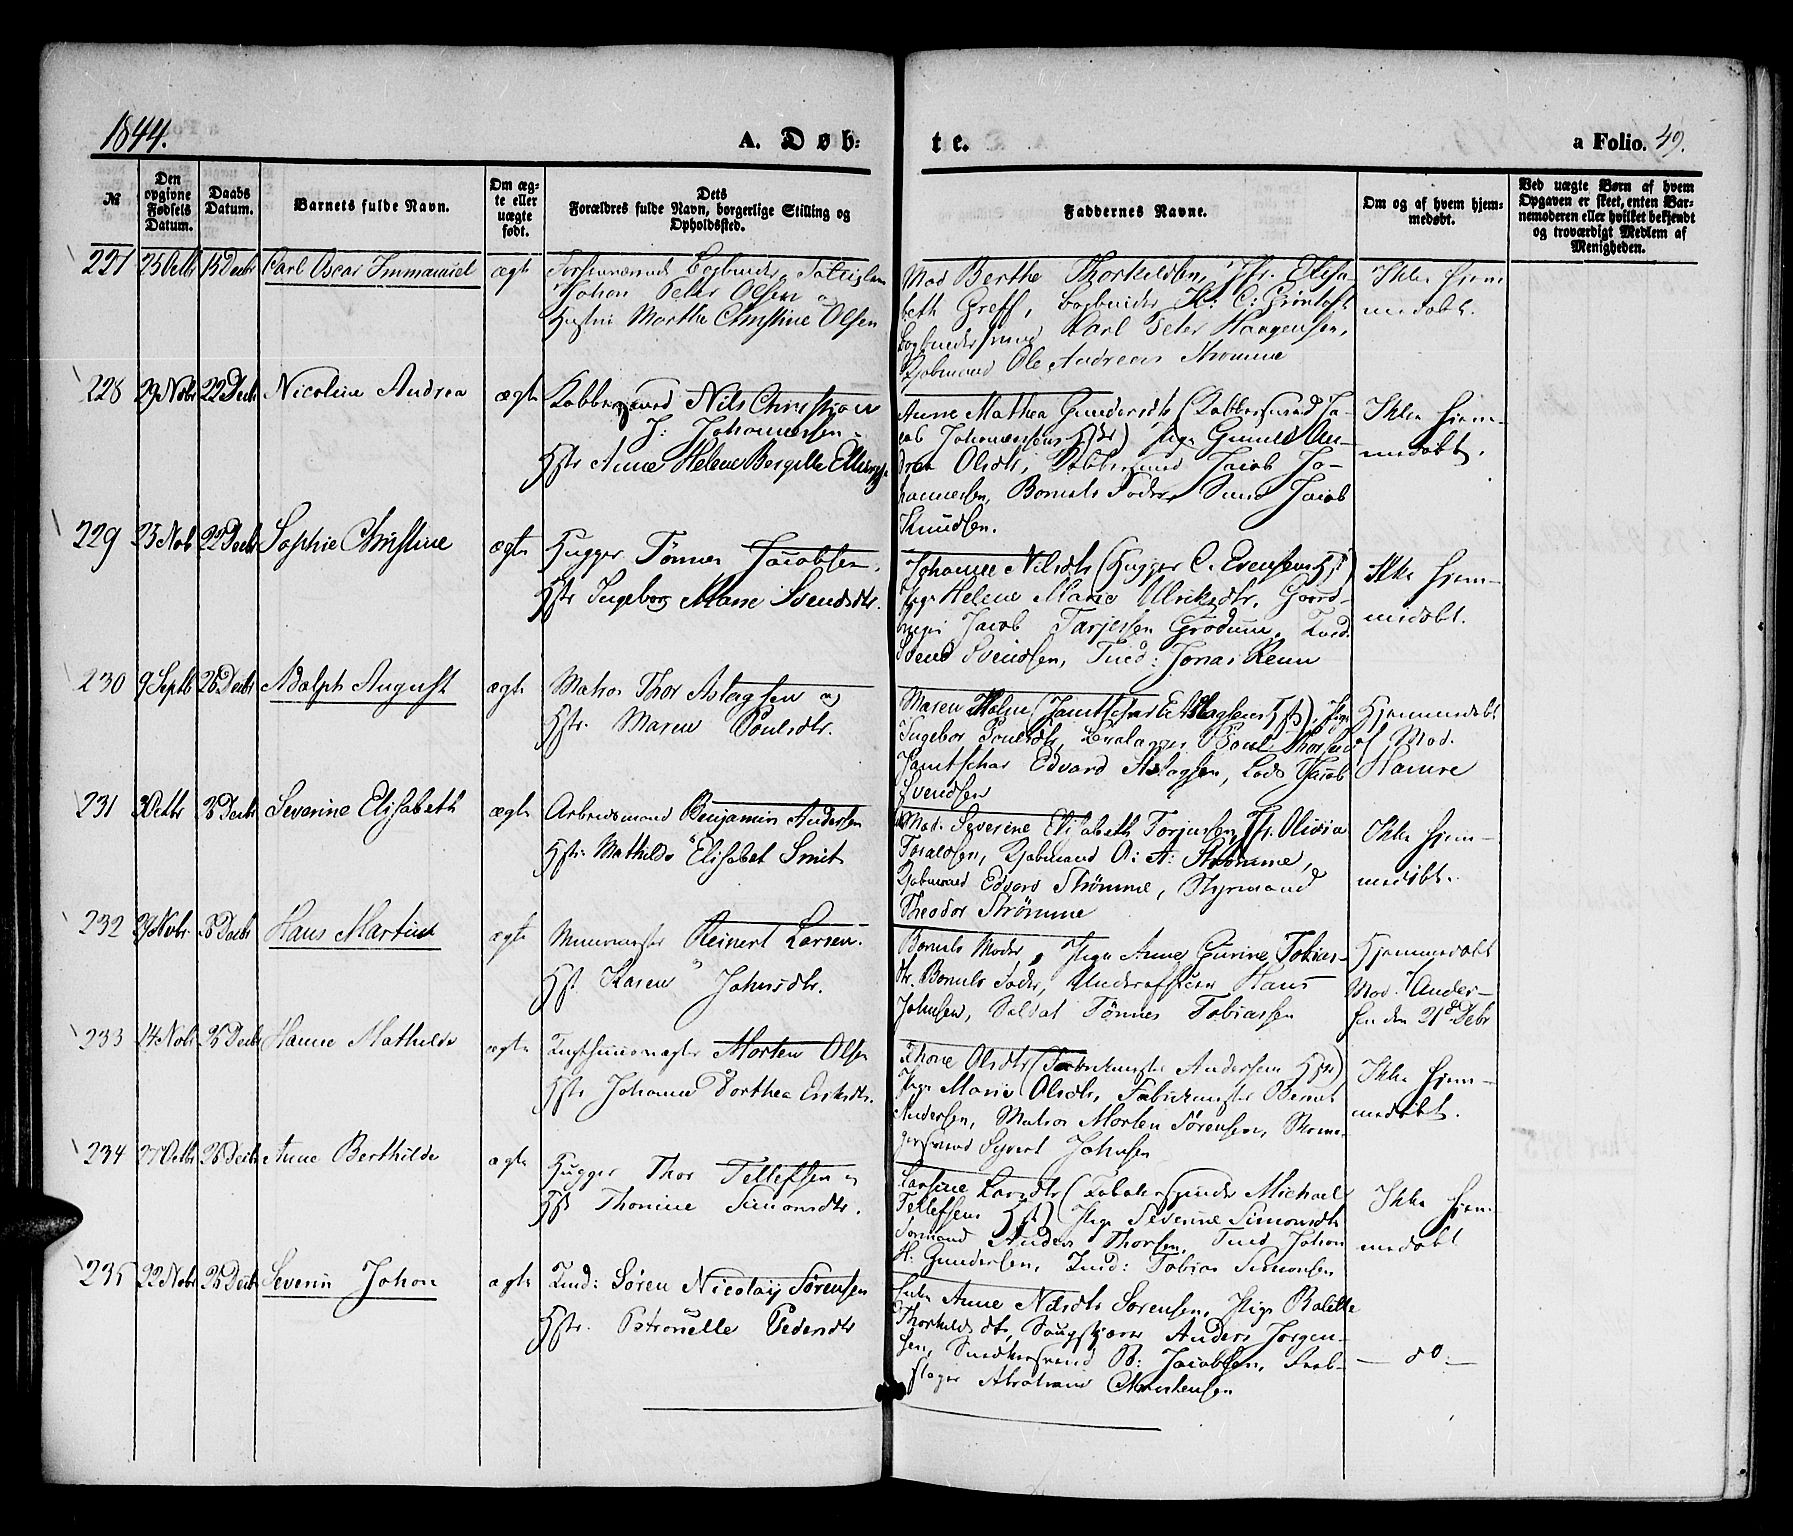 1844.
A. Døb-
te.
a Folio. 49.
№
Den opgivne Fødsels Datum.
Daabs Datum.
Barnets fulde Navn.
Om ægte eller uægte født.
Dets
Forældres fulde Navn, borgerlige Stilling og
Opholdssted.
Faddernes Navne.
Om og af hvem hjem-
medøbt.
Ved uægte Børn af hvem
Opgaven er skeet, enten Bar-
nemoderen eller hvilket bekjendt
og troværdigt Medlem af
Menigheden.
227 25 Octbr 15 Decbr Carl Oscar Immanuel ægte
Johan Peter Olsen og
Hustru Marthe Christine Olsen
Mad Berthe Thorkildsen, Jfr. Elisa-
beth Greff, Bogbinder H: C: Grøntoft
Bogbindersvend Karl Peter Haagensen,
Kjøbmand Ole Andreas Strømme
Ikke hjem-
medøbt.
228 29 Nobr 22 Decbr Nicoline Andrea ægte
Kobbersmed Nils Christian
J: Johannessen
Hstr Anne Helene Bergitte Ellings
Anne Mathea Gundersdtr (Kobbersmed Ja-
cob Johannesens Hstr) Pige Gunild An-
drea Olsdtr, Kobbersmed Jacob Jo-
hannesen, Barnets Fader, Smed Jacob
Knudsen.
Ikke hjem-
medøbt.
229 23 Nob 22 Decbr Sophie Christine ægte
Hugger Tønnes Jacobsen,
Hstr Ingeborg Marie Svendsdtr.
Johanne Nilsdtr (Hugger C. Evensens Hst)
Pige Helene Marie Ulriksdtr. Gaard-
Jacob Tarjesen Grødum,
Svend Svendsen, Tind: Jonas Reme
Ikke hjem-
medøbt.
230 9 Septb 26 Decbr Adolph August ægte
Matros Thor Aslagsen og
Hstr. Maren Poulsdtr.
Maren Helene (Jantschar E. Aslagsens Hst), Pige
Ingebor Poulsdtr, Poul Thorsen
Jantschar Edvard Aslagsen, Lods Jacob
Svendsen
Hjemmedøbt
af Mad.
Hamre
231 3 Octbr 26 Decbr Severine Elisabeth ægte
Arbeidsmand Benjamin Andersen
Hstr. Mathilde Elisabet Smit
Mad. Severine Elisabeth Torjussen, Jfr. Olivia
Toraldsen, Kjøbmand O: A: Strømme,
Kjøbmand Edvard Strømme, Styrmand
Theodor Strømme
Ikke hjem-
medøbt.
232 29 Nobr. 26 Decbr Hans Martin ægte
Muurmester Reinert Larsen.
Hst. Karen Johnsdtr.
Barnets Moder, Pige Anne Gurine Tobias-
dtr. Barnets Fader, Underofficeer Hans
Johnsen, Soldat Tønnes Tobiassen
Hjemmedøbt
Mad. Ander-
sen den 21de Debr
233 14 Nobr 26 Decbr Hanne Mathilde ægte
Morten Olsen
Hstr Johanne Dorthea Eriksdtr.
Thone Olsdtr (Fabrikmester Andersens Hst)
Pige Marie Olsdtr, Fabrikmester Bernt
Andersen, Matros Morten Sørensen,
Syvert Johnsen
Ikke hjem-
medøbt.
234 27 Octbr 26 Decbr Anne Berthilde ægte
Hugger Thor Tellefsen og
Hst Thomine Simonsdtr.
Larsine Larsdtr ( Michael
Tellefsens Hst) Pige Severine Simonsdtr
Sømand Anders Thorsen, Tind Johan
H. Gundersen, Tind: Tobias Simonsen
Ikke hjem-
medøbt
235 22 Nobr 26 Decbr Severin Johan ægte
Tind: Søren Nicolaij Sørensen
Hstr. Petronelle Pedersdtr
Enke Anne Nilsdtr Sørensen, Pige Bolette
Thorkildsdtr, Anders Jørgen-
sen, Snedkersvend B: Jacobsen,
Abraham Christensen
— do —